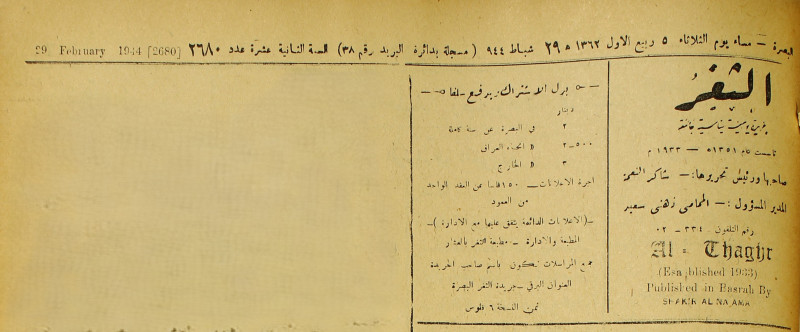 البصرة – مساء يوم الثلاثاء ٥ ربيع الاول ١٣٦٢ ه ٢٩ شباط ٩٤٤ ( مسجلة بدائرة البريد رقم ٣٨) السنة الثانية عشرة عدد ٢٦٨٠ 29 February 1944 [2680]
الثغر
جريدة يومية سياسية جامعة
تأسست عام ١٣٥١ه – ١٩٣٣ م
صاحبها ورئيس تحريرها:– شاكر النعمة
المدير المسؤول :– المحامي ذهني سعيد
رقم التلفون : ٣٣٤ – ٠٢
Al - Thaghr
(Esablished 1933)
Published in Basrah By
SHAKIR AL NAAMA
بدل الاشتراك ويدفع سلفا
دينار
٢ في البصرة عن سنة كاملة
٢–٥٠٠ » انحاء العراق
٣ » الخارج
اجرة الاعلانات – ١٥٠ فلسا عن العقد الواحد
من العمود
–(الاعلانات الدائمة يتفق عليها مع الادارة )–
المطبعة والادارة – مطبعة الثغر بالعشار
جميع المراسلات تكون باسم صاحب الجريدة
العنوان البرقي – جريدة الثغر البصرة
ثمن النسخة ٦ فلوس